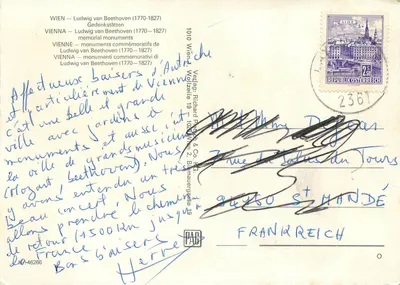 WIEN – Ludwig van Beethoven (1770-1827)
Gedenkstätten
VIENNA – Ludwig van Beethoven (1770-1827)
memorial monuments
VIENNE – monuments commémoratifs de
Ludwig van Beethoven (1770-1827)
VIENNA – monumenti commemorativi di
Ludwig van Beethoven (1770-1827)
Affectueux baisers d'Autriche
et particulièrement de Vienne
c'est une belle et grande
ville avec jardins à
monuments et aussi c'est
la ville de grands musiciens
(Mozart, Beethoven). Nous
y avons entendu un très
beau concert. Nous
allons prendre le chemin
de retour (1500 km jusqu'à
la France
Bons baisers
Herve
1010 Wien, Wollzeile 19
Verlag
PAG
REPUBLIK ÖSTERREICH
2361
rue
du Tours
94160 St MANDÉ
FRANKREICH